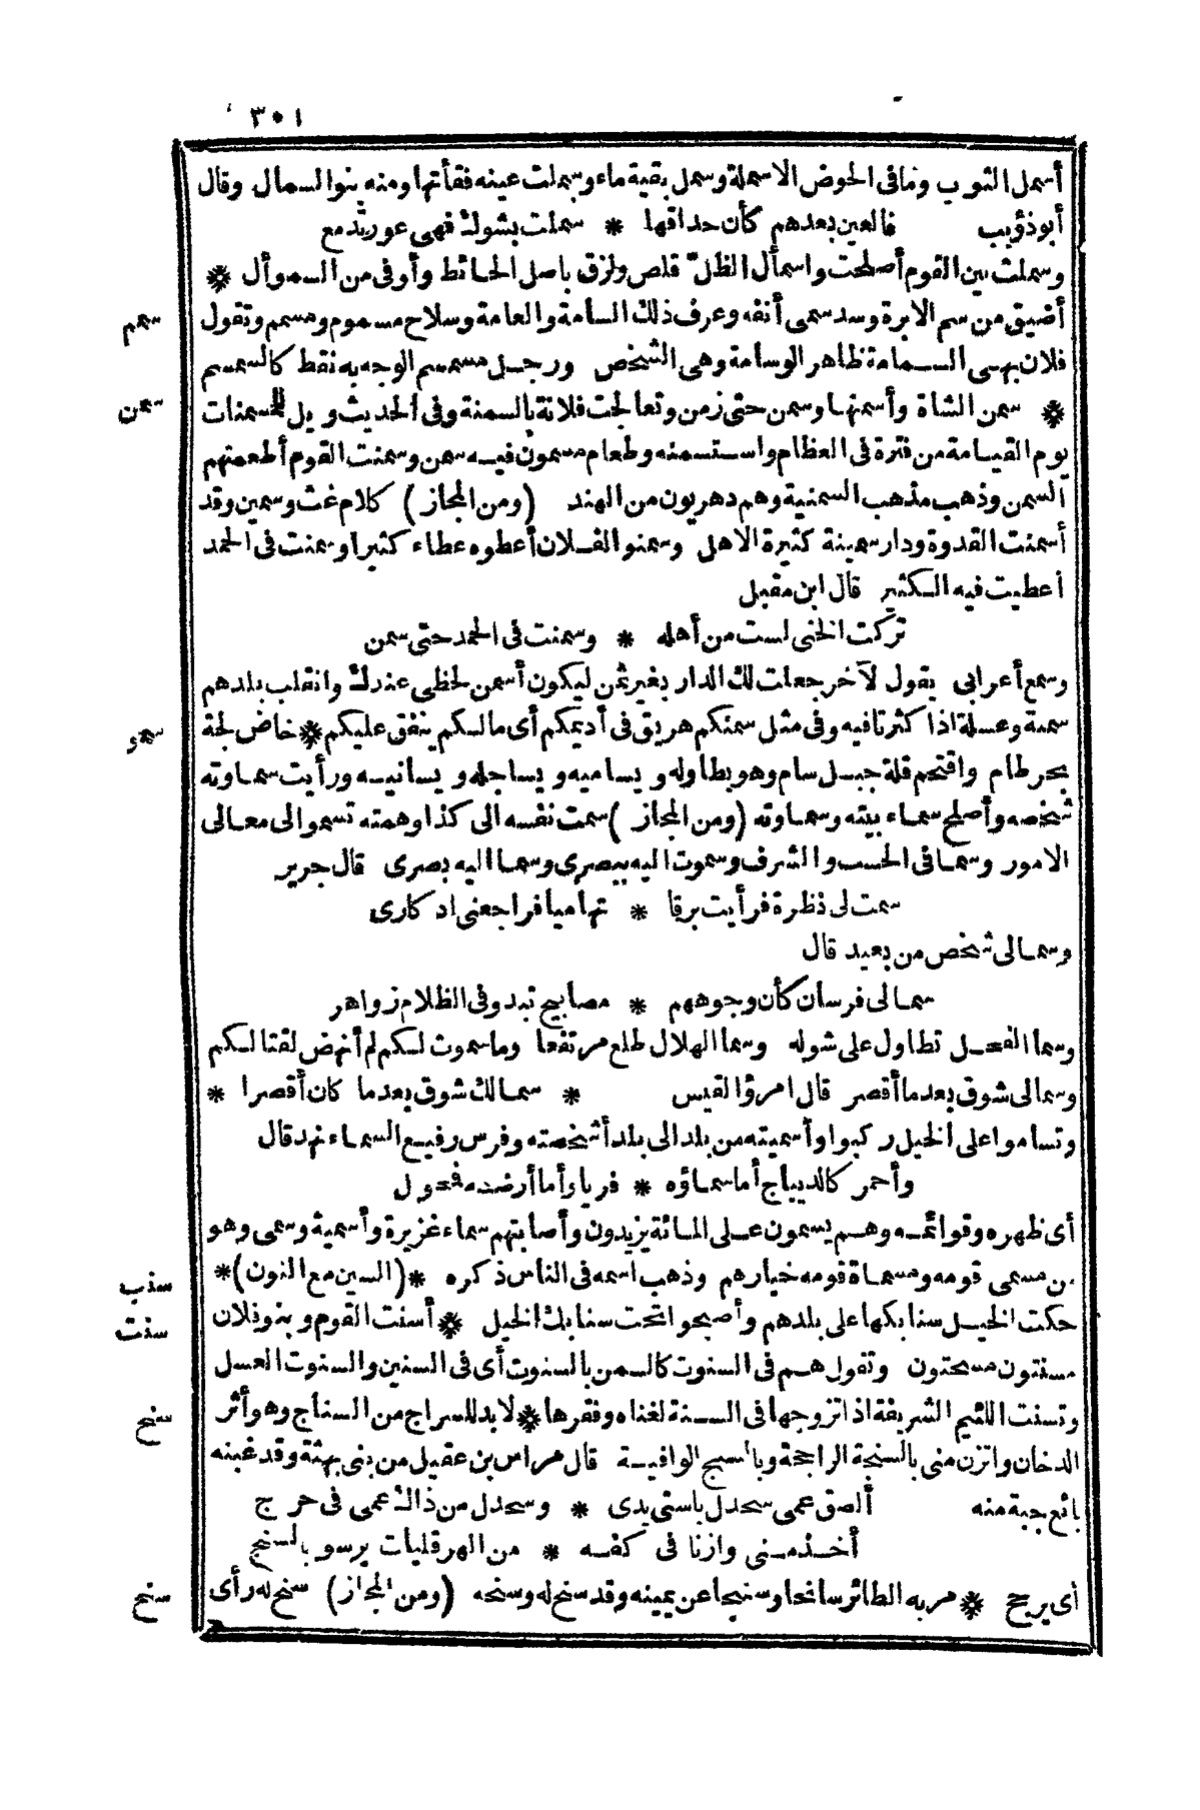 ٣٠١
أسمل الثوب وما فى الحوض الاسملة وسمل بقية ماء وسملت عينه فقأتها ومنه بنو السمال وقال
أبو ذؤيب فالعين بعدهم كأن حداقها * سملت بشوك فهى عور تدمع
وسملت بين القوم أصلحت واسمأل الظل قلص ولزق باصل الحائط وأوفى من السموأل *
سمم أضيق من سم الابرة وسد سمى أنفه وعرف ذلك السامة والعامة وسلاح مسموم ومسمم وتقول
فلان بهى السمامة ظاهر الوسامة وهى الشخص ورجل مسمسم الوجه به نقط كالسمسم
سمن * سمن الشاة وأسمنها وسمن حتى زمن وتعالجت فلانة بالسمنة وفى الحديث ويل للمسمنات
يوم القيامة من فترة فى العظام واستسمنه وطعام مسمون فيه سمن وسمنت القوم أطعمتهم
السمن وذهب مذهب السمنية وهم دهريون من الهند (ومن المجاز) كلام غث وسمين وقد
أسمنت القدوة ودار سمينة كثيرة الاهل وسمنوا لفلان أعطوه عطاء كثيرا وسمنت فى الحمد
أعطيت فيه الكثير قال ابن مقبل
تركت الخنى لست من أهله * وسمنت فى الحمد حتى سمن
وسمع أعرابى يقول لآخر جعلت لك الدار بغير ثمن ليكون أسمن لحظى عندك وانقلب بلدهم
سمو سمنة وعسلة اذا كثرتا فيه وفى مثل سمنكم هريق فى أديمكم أى مالكم ينفق عليكم * خاض لجة
بحر طام واقتحم قلة جبل سام وهو يطاوله ويساميه ويساجله ويسانيه ورأيت سماوته
شخصه وأصلح سماء بيته وسماوته (ومن المجاز) سمت نفسه الى كذا وهمته تسمو الى معالى
الامور وسما فى الحسب والشرف وسموت اليه ببصرى وسما اليه بصرى قال جرير
سمت لى نظرة فرأيت برقا * تهاميا فراجعنى ادكارى
وسما لى شخص من بعيد قال
سما لى فرسان كأن وجوههم * مصابيح تبدو فى الظلام زواهر
وسما الفحل تطاول على شوله وسما الهلال طلع مرتفعا وما سموت لكم لم أنهض لقتالكم
وسما لى شوق بعدما أقصر قال امرؤ القيس * سما لك شوق بعدما كان أقصرا *
وتساموا على الخيل ركبوا وأسميته من بلد الى بلد أشخصته وفرس رفيع السماء نهد قال
وأحمر كالديباج أما سماؤه * فريا وأما أرضه فمحول
أى ظهره وقوائمه وهم يسمون على المائة يزيدون وأصابتهم سماء غزيرة وأسمية وسمى وهو
سنب من مسمى قومه ومسماة قومه خيارهم وذهب اسمه فى الناس ذكره *(السين مع النون)*
سنت حكت الخيل سنابكها على بلدهم وأصبحوا تحت سنابك الخيل * أسنت القوم وبنو فلان
مسنتون مسحتون وتقول هم فى السنوت كالسمن بالسنوت أى فى السنين والسنوت العسل
سنج وتسنت اللئيم الشريفة اذا تزوجها فى السنة لغناه وفقرها * لا بد للسراج من السناج وهو أثر
الدخان واتزن منى بالسنجة الراجحة وبالسنج الوافية قال مراس بن عقيل من بنى بهثة وقد غبنه
بائع جبة منه ألصق عمى سحدل باستى يدى * وسحدل من ذاك عمى فى حرج
أخذ منى وازنا فى كفه * من الهرقليات يرسو بالسنج
سنح أى يرجح * مر به الطائر سانحا وسنيحا عن يمينه وقد سنح له وسنحه (ومن المجاز) سنح له رأى